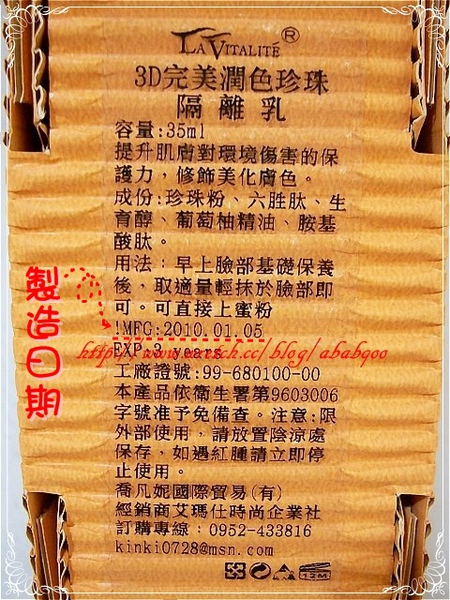 LA VITALITÉ®
3D完美潤色珍珠
隔離乳
容量:35ml
提升肌膚對環境傷害的保
護力,修飾美化膚色。
成份:珍珠粉、六胜肽、生
育醇、葡萄柚精油、胺基
酸肽。
用法:早上臉部基礎保養
後,取適量輕抹於臉部即
可。可直接上蜜粉
!MFG:2010.01.05
EXP.3 years
工廠證號:99-680100-00
本產品依衛生署第9603006
字號准予免備查。注意:限
外部使用,請放置陰涼處
保存,如遇紅腫請立即停
止使用。
喬凡妮國際貿易(有)
經銷商艾瑪仕時尚企業社
訂購專線:0952-433816
kinki0728@msn.com
12M
製造日期